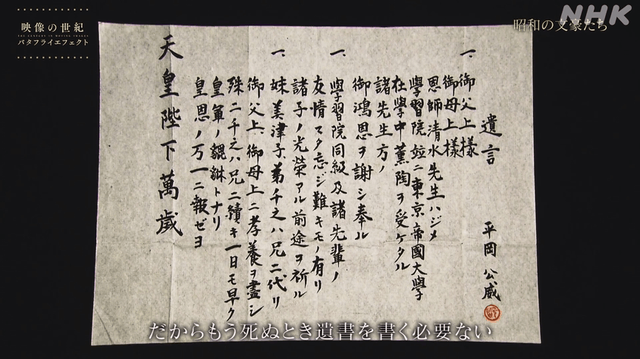 映像の世紀
バタフライエフェクト
NHK
昭和の文豪たち
遺言
平岡公威
一、御父上樣
御母上樣
恩師清水先生ハジメ
學習院竝ニ東京帝國大學
在學中薫陶ヲ受ケタル
諸先生方ノ
御鴻恩ヲ謝シ奉ル
一、學習院同級及諸先輩ノ
友情マタ忘ジ難キモノ有リ
諸子ノ光榮アル前途ヲ祈ル
一、妹美津子、弟千之ハ兄ニ代リ
御父上、御母上ニ孝養ヲ盡シ
殊ニ千之ハ兄ニ續キ一日モ早ク
皇軍ノ貔貅トナリ
皇恩ノ万一ニ報ゼヨ
天皇陛下萬歳
だからもう死ぬとき遺書を書く必要ない